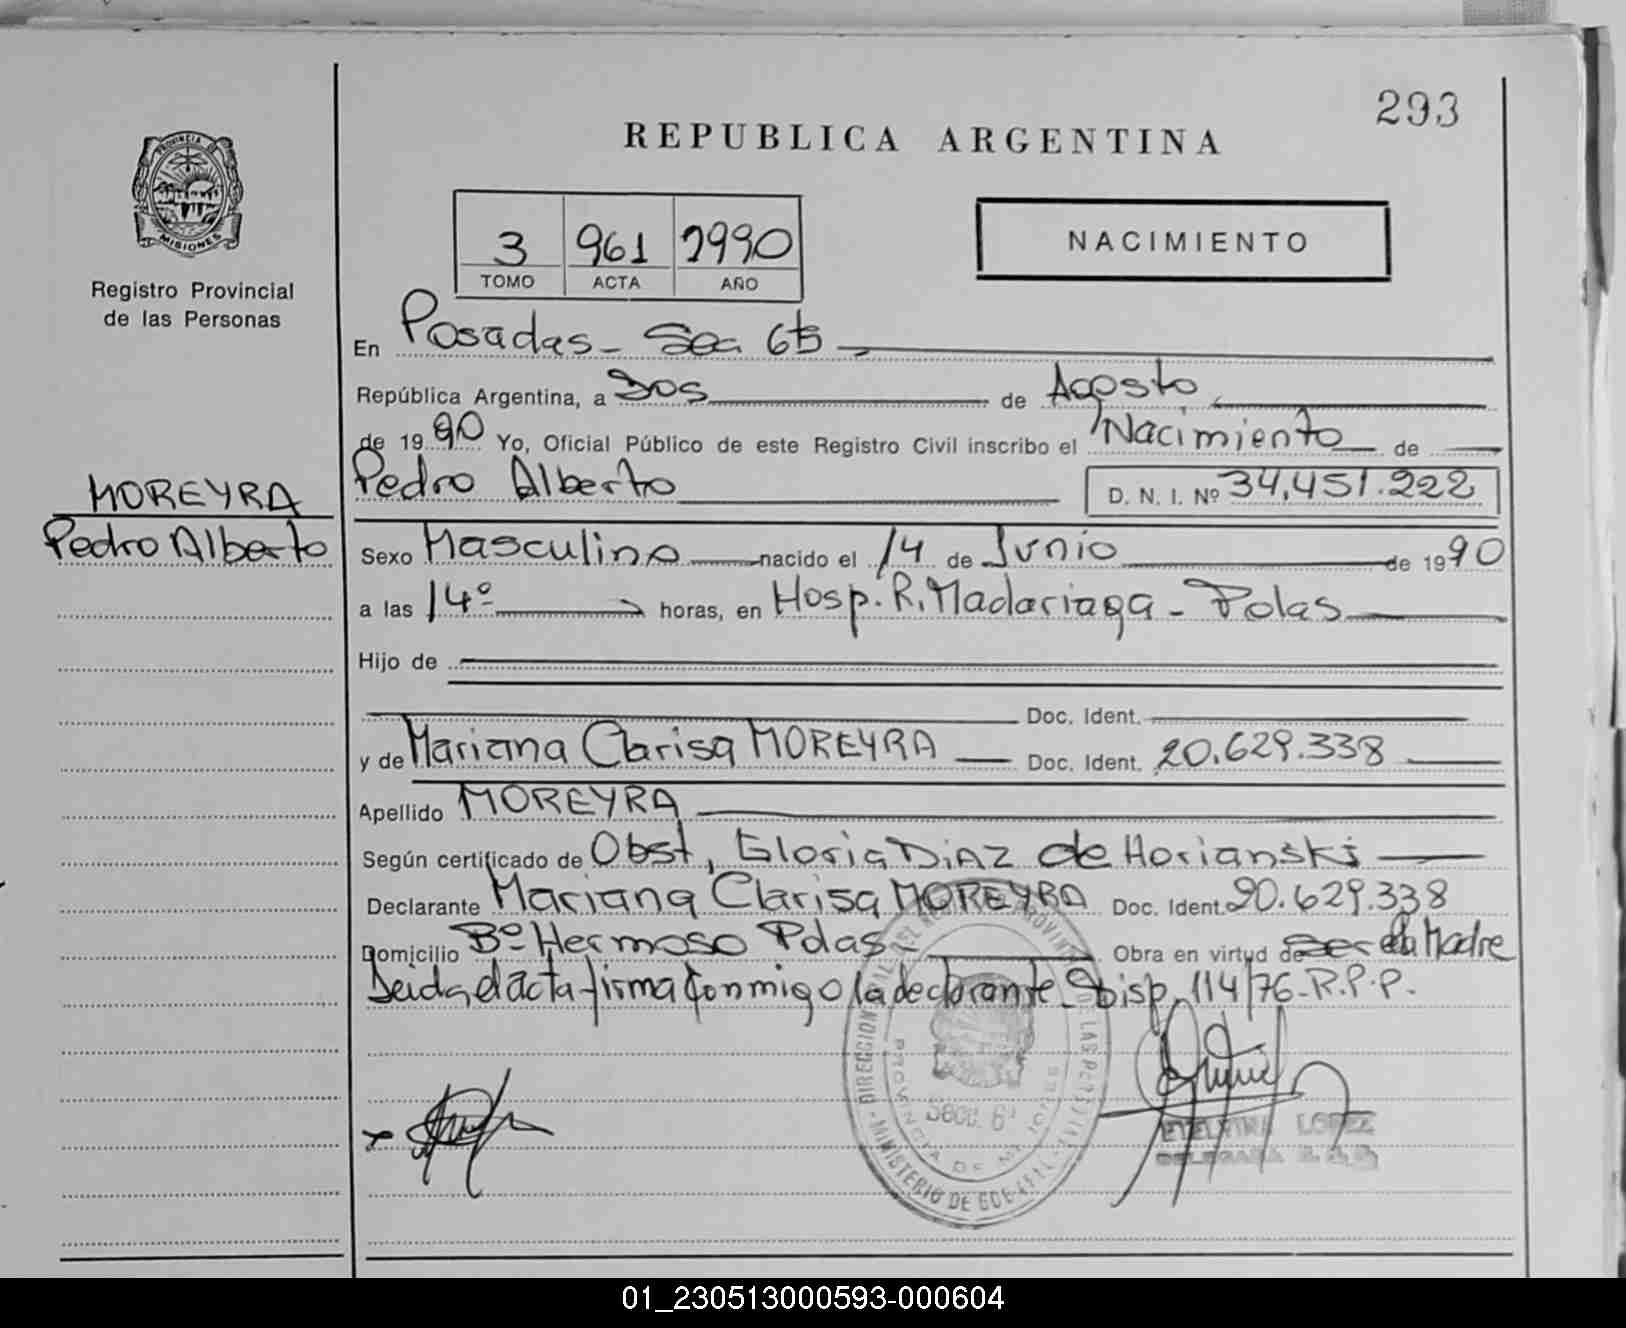 293
REPUBLICA ARGENTINA
PROVINCIA DE
MISIONES
Registro Provincial
de las Personas
3 961 1990
TOMO ACTA AÑO
NACIMIENTO
En Posadas - Sec. 6ta
República Argentina, a Dos de Agosto
de 1990 Yo, Oficial Público de este Registro Civil inscribo el Nacimiento de
Pedro Alberto D. N. I. Nº 34,451.222
MOREYRA
Pedro Alberto
Sexo Masculino nacido el 14 de Junio de 1990
a las 14º horas, en Hosp. R. Madariaga - Pdas
Hijo de
Doc. Ident.
y de Mariana Clarisa MOREYRA Doc. Ident. 20.629.338
Apellido MOREYRA
Según certificado de Obst, Gloria DiAZ de Horianski
Declarante Mariana Clarisa MOREYRA Doc. Ident. 20.629.338
Domicilio Bº Hermoso Pdas Obra en virtud de Ser la Madre
Leida el acta firma conmigo la declarante Disp. 114/76-R.P.P.
SECC. 6ª
PROVINCIA DE MISIONES
MINISTERIO DE
ETELVINA LOPEZ
DELEGADA
01_230513000593-000604